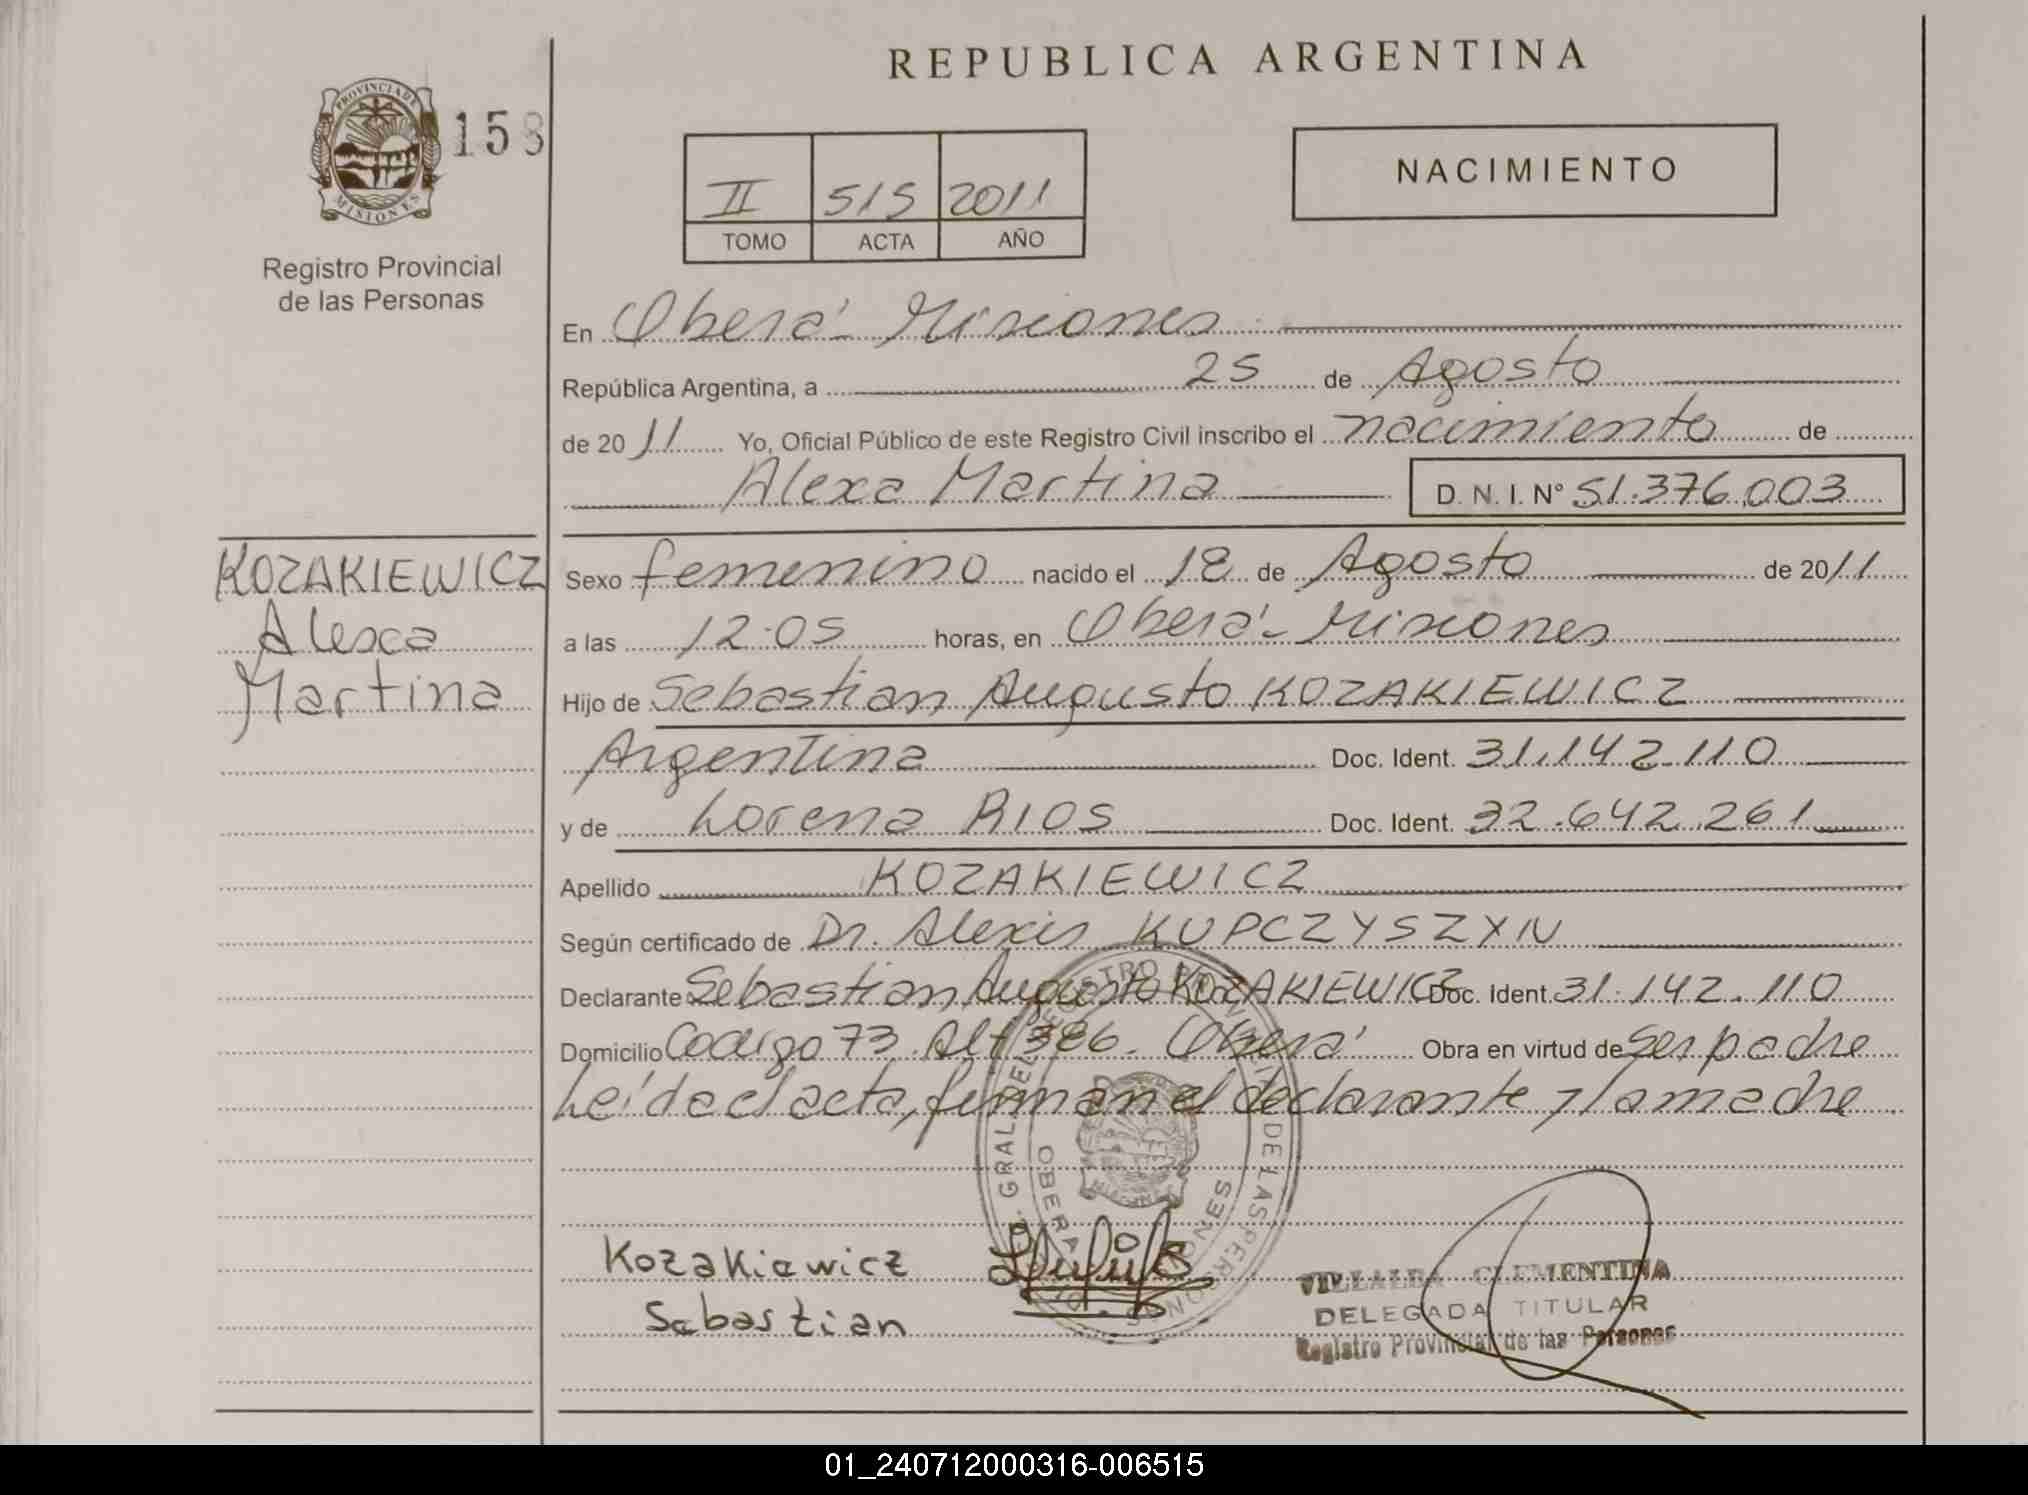 REPUBLICA ARGENTINA
PROVINCIA DE MISIONES
158
Registro Provincial
de las Personas
II 515 2011
TOMO ACTA AÑO
NACIMIENTO
En Oberá - Misiones
República Argentina, a 25 de Agosto
de 2011 Yo, Oficial Público de este Registro Civil inscribo el nacimiento de
Alexa Martina D. N. I. N° 51.376.003
KOZAKIEWICZ
Alexa
Martina
Sexo femenino nacido el 18 de Agosto de 2011
a las 12:05 horas, en Oberá - Misiones
Hijo de Sebastian Augusto KOZAKIEWICZ
Argentina Doc. Ident. 31.142.110
y de Lorena RIOS Doc. Ident. 32.642.261
Apellido KOZAKIEWICZ
Según certificado de Dr. Alexis KUPCZYSZYN
Declarante Sebastian Augusto KOZAKIEWICZ Doc. Ident. 31.142.110
Domicilio Codigo 73 Alt 386. Oberá Obra en virtud de ser padre
Leída el acta, firman el declarante y la madre
Kozakiewicz
Sebastian
VILLALBA CLEMENTINA
DELEGADA TITULAR
Registro Provincial de las Personas
01_240712000316-006515